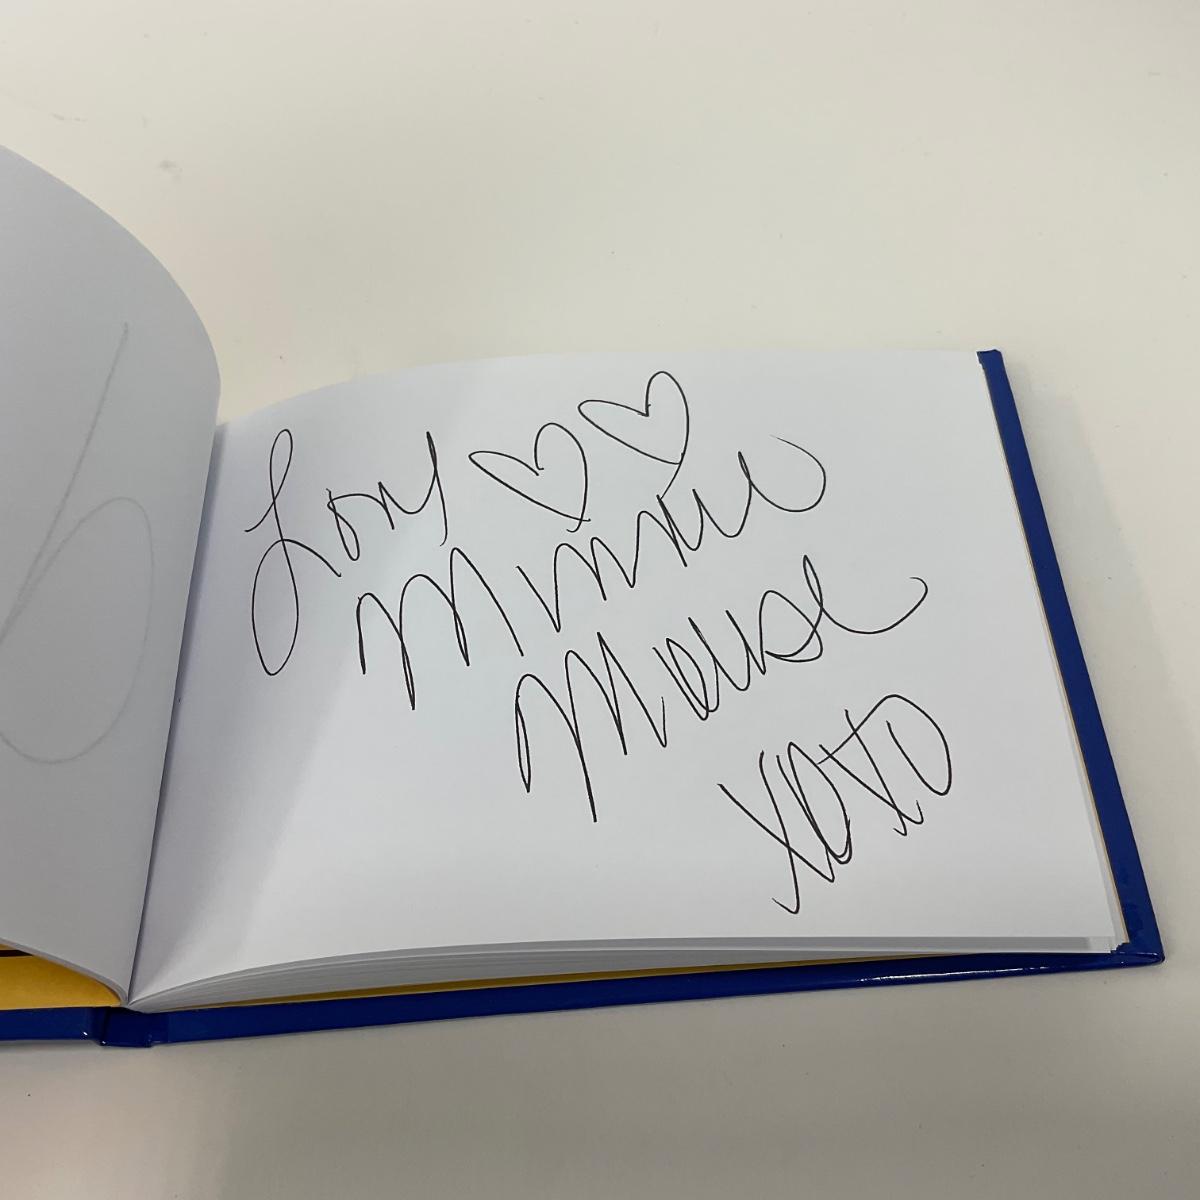 Love ♡♡
Minnie
Mouse
XOXO